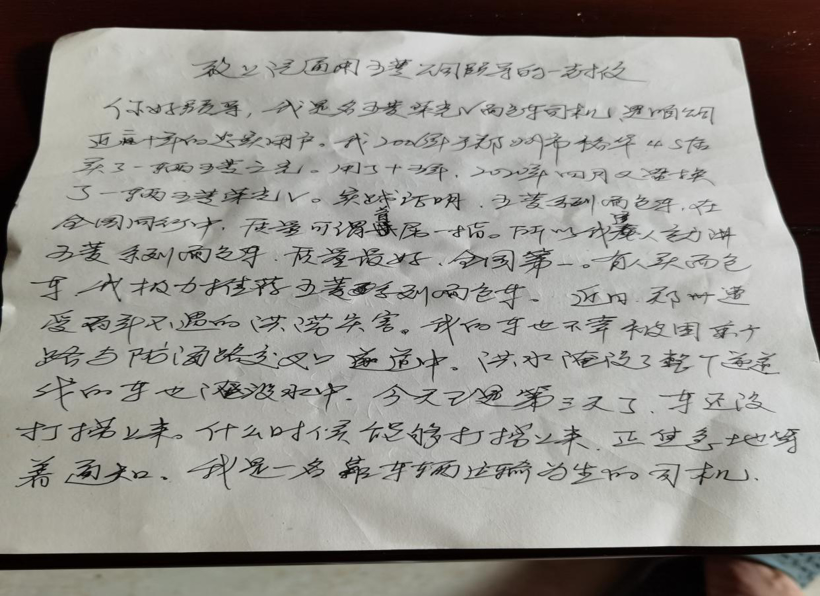 致上汽通用五菱公司领导的一封信
你好领导，我是名五菱荣光V面包车司机，是咱公司
近二十年的忠实用户。我2006年于郑州市 4S店
买了一辆五菱之光。用了十三年，2020年四月又 换
了一辆五菱荣光V。实践证明，五菱系列面包车，在
全国同行中，质量可谓首屈一指。所以我逢人主动讲
五菱系列面包车，质量最好，全国第一。有人买面包
车，我极力推荐五菱系列面包车。近日，郑州遭
受百年不遇的洪涝灾害。我的车也不幸被困京广
路与陇海路交叉口隧道中。洪水淹没了整个隧道
我的车也淹没水中。今天已是第三天了，车还没
打捞上来。什么时候能够打捞上来，正焦急地等
着通知。我是一名靠车辆运输为生的司机，